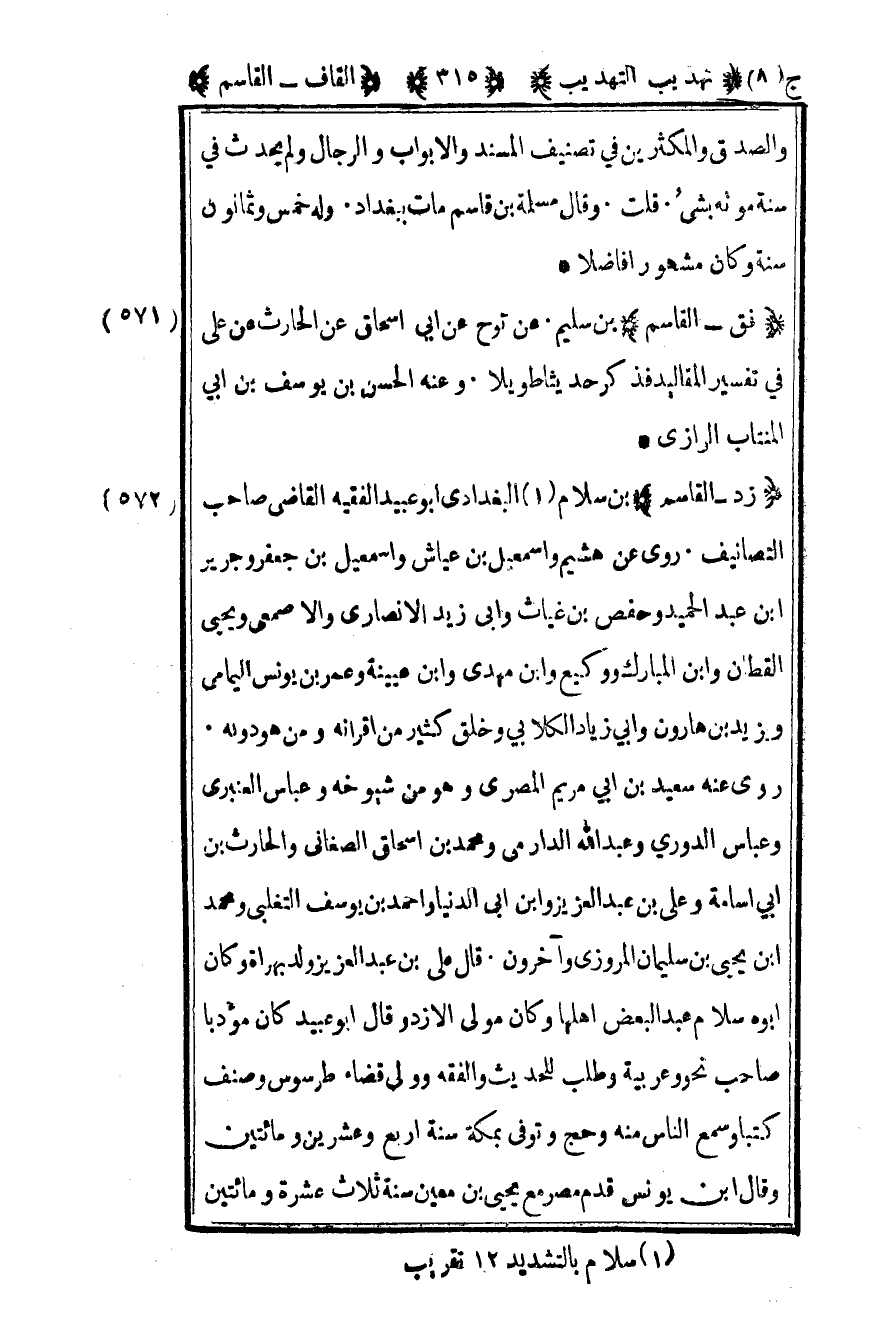 ج(٨) ﴿ تهذيب التهذيب ﴾ ﴿ ٣١٥ ﴾ ﴿ القاف - القاسم ﴾
والصدق والمكثرين في تصنيف المسند والابواب والرجال ولم يحدث في
سنة موته بشئ . قلت . وقال مسلمة بن قاسم مات ببغداد . وله خمس وثمانون
سنة وكان مشهورا فاضلا *
﴿ فق - القاسم ﴾ بن سليم . عن نوح عن ابي اسحاق عن الحارث عن على (٥٧١)
في تفسير المقاليد فذكر حديثا طويلا . وعنه الحسن بن يوسف بن ابي
المنتاب الرازى *
﴿ زد - القاسم ﴾ بن سلام (١) البغدادى ابو عبيد الفقيه القاضى صاحب (٥٧٢)
التصانيف . روى عن هشيم واسمعيل بن عياش واسمعيل بن جعفر وجرير
ابن عبد الحميد وحفص بن غياث وابى زيد الانصارى والاصمعى ويحيى
القطان وابن المبارك ووكيع وابن مهدى وابن عيينة وعمر بن يونس اليمامى
ويزيد بن هارون وابي زياد الكلابي وخلق كثير من اقرانه ومن هو دونه .
روى عنه سعيد بن ابي مريم المصرى وهو من شيوخه وعباس العنبرى
وعباس الدوري وعبدالله الدارمى ومحمد بن اسحاق الصغانى والحارث بن
ابي اسامة وعلى بن عبد العزيز وابن ابى الدنيا واحمد بن يوسف التغلبى ومحمد
ابن يحيى بن سليمان المروزى وآخرون . قال على بن عبد العزيز ولد بهراة وكان
ابوه سلام عبدا لبعض اهلها وكان مولى الازد وقال ابو عبيد كان مؤدبا
صاحب نحو وعربية وطلب للحديث والفقه وولي قضاء طرسوس وصنف
كتبا وسمع الناس منه وحج وتوفى بمكة سنة اربع وعشرين ومائتين
وقال ابن يونس قدم مصر مع يحيى بن معين سنة ثلاث عشرة ومائتين
(١) سلام بالتشديد ١٢ تقريب